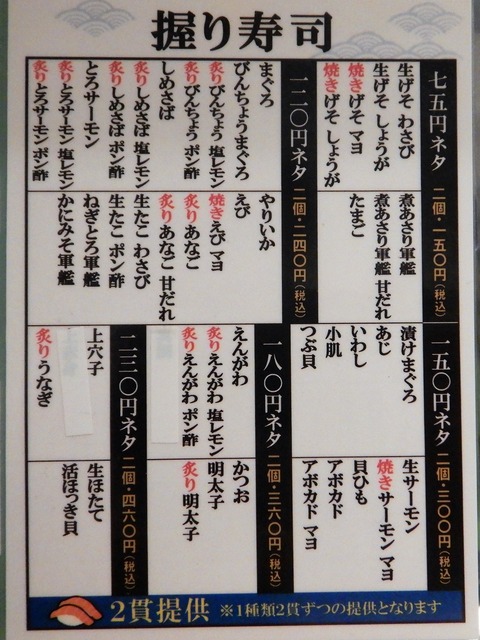 握り寿司
七五円ネタ 二個・一五〇円（税込）
生げそ わさび
生げそ しょうが
焼きげそ マヨ
焼きげそ しょうが
煮あさり軍艦
煮あさり軍艦 甘だれ
たまご
一二〇円ネタ 二個・二四〇円（税込）
まぐろ
びんちょうまぐろ
炙りびんちょう 塩レモン
炙りびんちょう ポン酢
しめさば
炙りしめさば 塩レモン
炙りしめさば ポン酢
とろサーモン
炙りとろサーモン 塩レモン
炙りとろサーモン ポン酢
やりいか
えび
焼きえび マヨ
炙りあなご
炙りあなご 甘だれ
生たこ わさび
生たこ ポン酢
ねぎとろ軍艦
かにみそ軍艦
一五〇円ネタ 二個・三〇〇円（税込）
漬けまぐろ
あじ
いわし
小肌
つぶ貝
生サーモン
焼きサーモン マヨ
貝ひも
アボカド
アボカド マヨ
一八〇円ネタ 二個・三六〇円（税込）
えんがわ
炙りえんがわ 塩レモン
炙りえんがわ ポン酢
かつお
明太子
炙り明太子
二三〇円ネタ 二個・四六〇円（税込）
上穴子
炙りうなぎ
生ほたて
活ほっき貝
2貫提供 ※1種類2貫ずつの提供となります